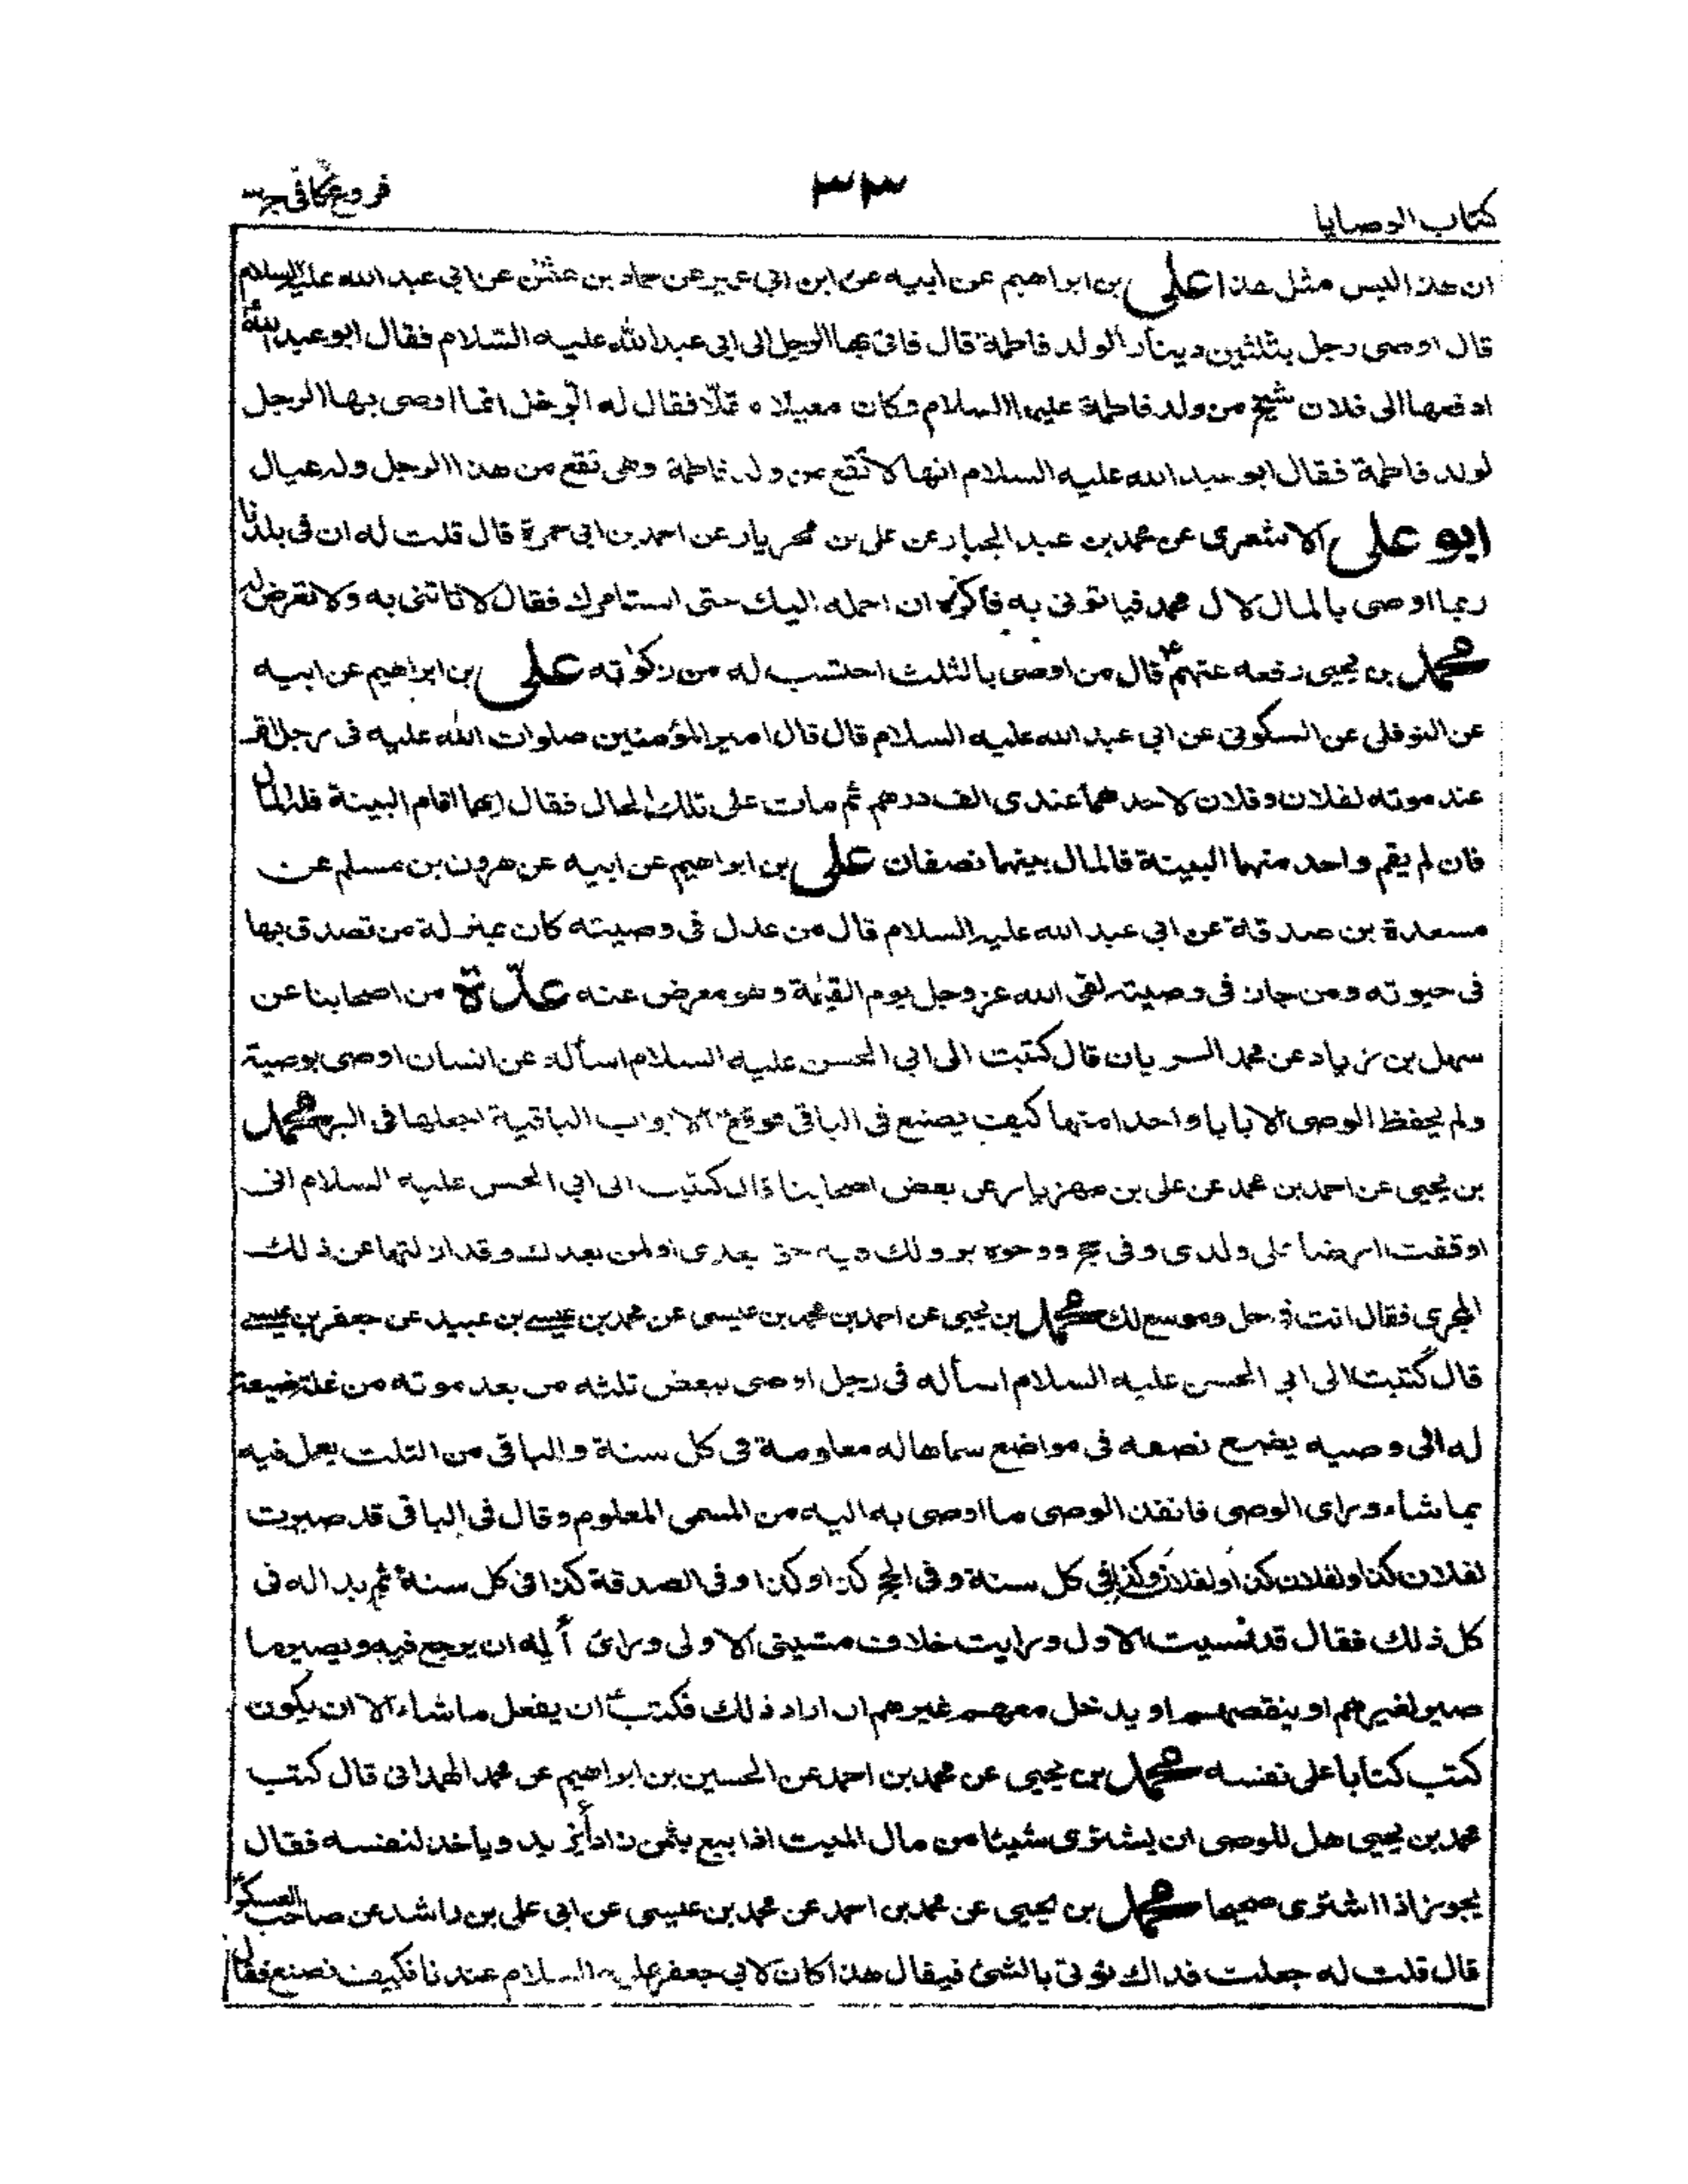 كتاب الوصايا
٣٣
فروع كافى ج٣
ان هذا ليس مثل هذا على بن ابراهيم عن أبيه عن ابن ابى عمير عن حماد بن عثمٰن عن ابى عبد الله عليه السلام
قال اوصى رجل بثلثين دينارا لولد فاطمة قال فاتى بها الرجل الى ابى عبدالله عليه السّلام فقال ابوعبدالله
ادفعها الى فلان شيخ من ولد فاطمة عليها السلام وكان معيلا مقلّا فقال له الرّجل انما اوصى بها الرجل
لولد فاطمة فقال ابو عبد الله عليه السلام انها لا تقع من ولد فاطمة وهى تقع من هذا الرجل وله عيال
ابو على الاشعرى عن محمد بن عبد الجبار عن على بن مهزيار عن احمد بن ابى حمزة قال قلت له ان فى بلدنا
ربما اوصى بالمال لال محمد فياتونى به فاكره ان احمله اليك حتى استامرك فقال لا تاتنى به ولا تعرض له
محمد بن يحيى رفعه عنهم ع قال من اوصى بالثلث احتسب له من زكوٰته على بن ابراهيم عن ابيه
عن النوفلى عن السكونى عن ابى عبد الله عليه السلام قال قال امير المؤمنين صلوات الله عليه فى رجل اقر
عند موته لفلان وفلان لاحدهما عندى الف درهم ثم مات على تلك الحال فقال ايهما اقام البينة فله المال
فان لم يقم واحد منهما البينة فالمال بينهما نصفان على بن ابراهيم عن ابيه عن هرون بن مسلم عن
مسعدة بن صدقة عن ابى عبد الله عليه السلام قال من عدل فى وصيته كان بمنزلة من تصدق بها
فى حيوته ومن جار فى وصيته لقى الله عز وجل يوم القيٰمة وهو معرض عنه عدّة من اصحابنا عن
سهل بن زياد عن محمد الريان قال كتبت الى ابى الحسن عليه السلام اسأله عن انسان اوصى بوصية
ولم يحفظ الوصى الا بابا واحدا منها كيف يصنع فى الباقى فوقع ع الابواب الباقية اجعلها فى البر محمد
بن يحيى عن احمد بن محمد عن على بن مهزيار عن بعض اصحابنا قال كتبت الى ابى الحسن عليه السلام انى
اوقفت ارضا على ولدى وفى حج ووجوه بر ولك فيه حق بعدى اولمن بعدك وقد ازلتها عن ذلك
المجرى فقال انت فى حل وموسع لك محمد بن يحيى عن احمد بن محمد بن عيسى عن محمد بن عيسى بن عبيد عن جعفر بن عيسى
قال كتبت الى ابى الحسن عليه السلام اسأله فى رجل اوصى ببعض ثلثه من بعد موته من غلة ضيعة
له الى وصيه يضع نصفه فى مواضع سماها له معلومة فى كل سنة والباقى من الثلث يعمل فيه
بما شاء وراى الوصى فانفذ الوصى ما اوصى به اليه من المسمى المعلوم وقال فى الباقى قد صيرت
لفلان كذا ولفلان كذا ولفلان كذا فى كل سنة وفى الحج كذا وكذا وفى الصدقة كذا فى كل سنة ثم بدا له فى
كل ذلك فقال قد نسيت الاول ورايت خلاف مشيتى الاولى وراى أ له ان يرجع فيه ويصير ما
صير لغيرهم او ينقصهم او يدخل معهم غيرهم ان اراد ذلك فكتب ع ان يفعل ما شاء الا ان يكون
كتب كتابا على نفسه محمد بن يحيى عن محمد بن احمد عن الحسين بن ابراهيم عن محمد الهمدانى قال كتب
محمد بن يحيى هل للوصى ان يشترى شيئا من مال الميت اذا بيع بثمن زاد يزيد وياخذ لنفسه فقال
يجوز اذا اشترى صحيحا محمد بن يحيى عن محمد بن احمد عن محمد بن عيسى عن ابى على بن راشد عن صاحب العسكر
قال قلت له جعلت فداك نؤتى بالشئ فيقال هذا كان لابى جعفر عليه السلام عندنا فكيف نصنع فقال